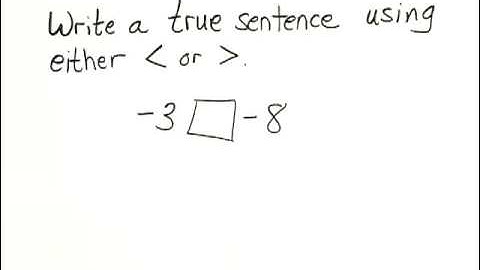 Write a true sentence using
either < or >.
-3 □ -8